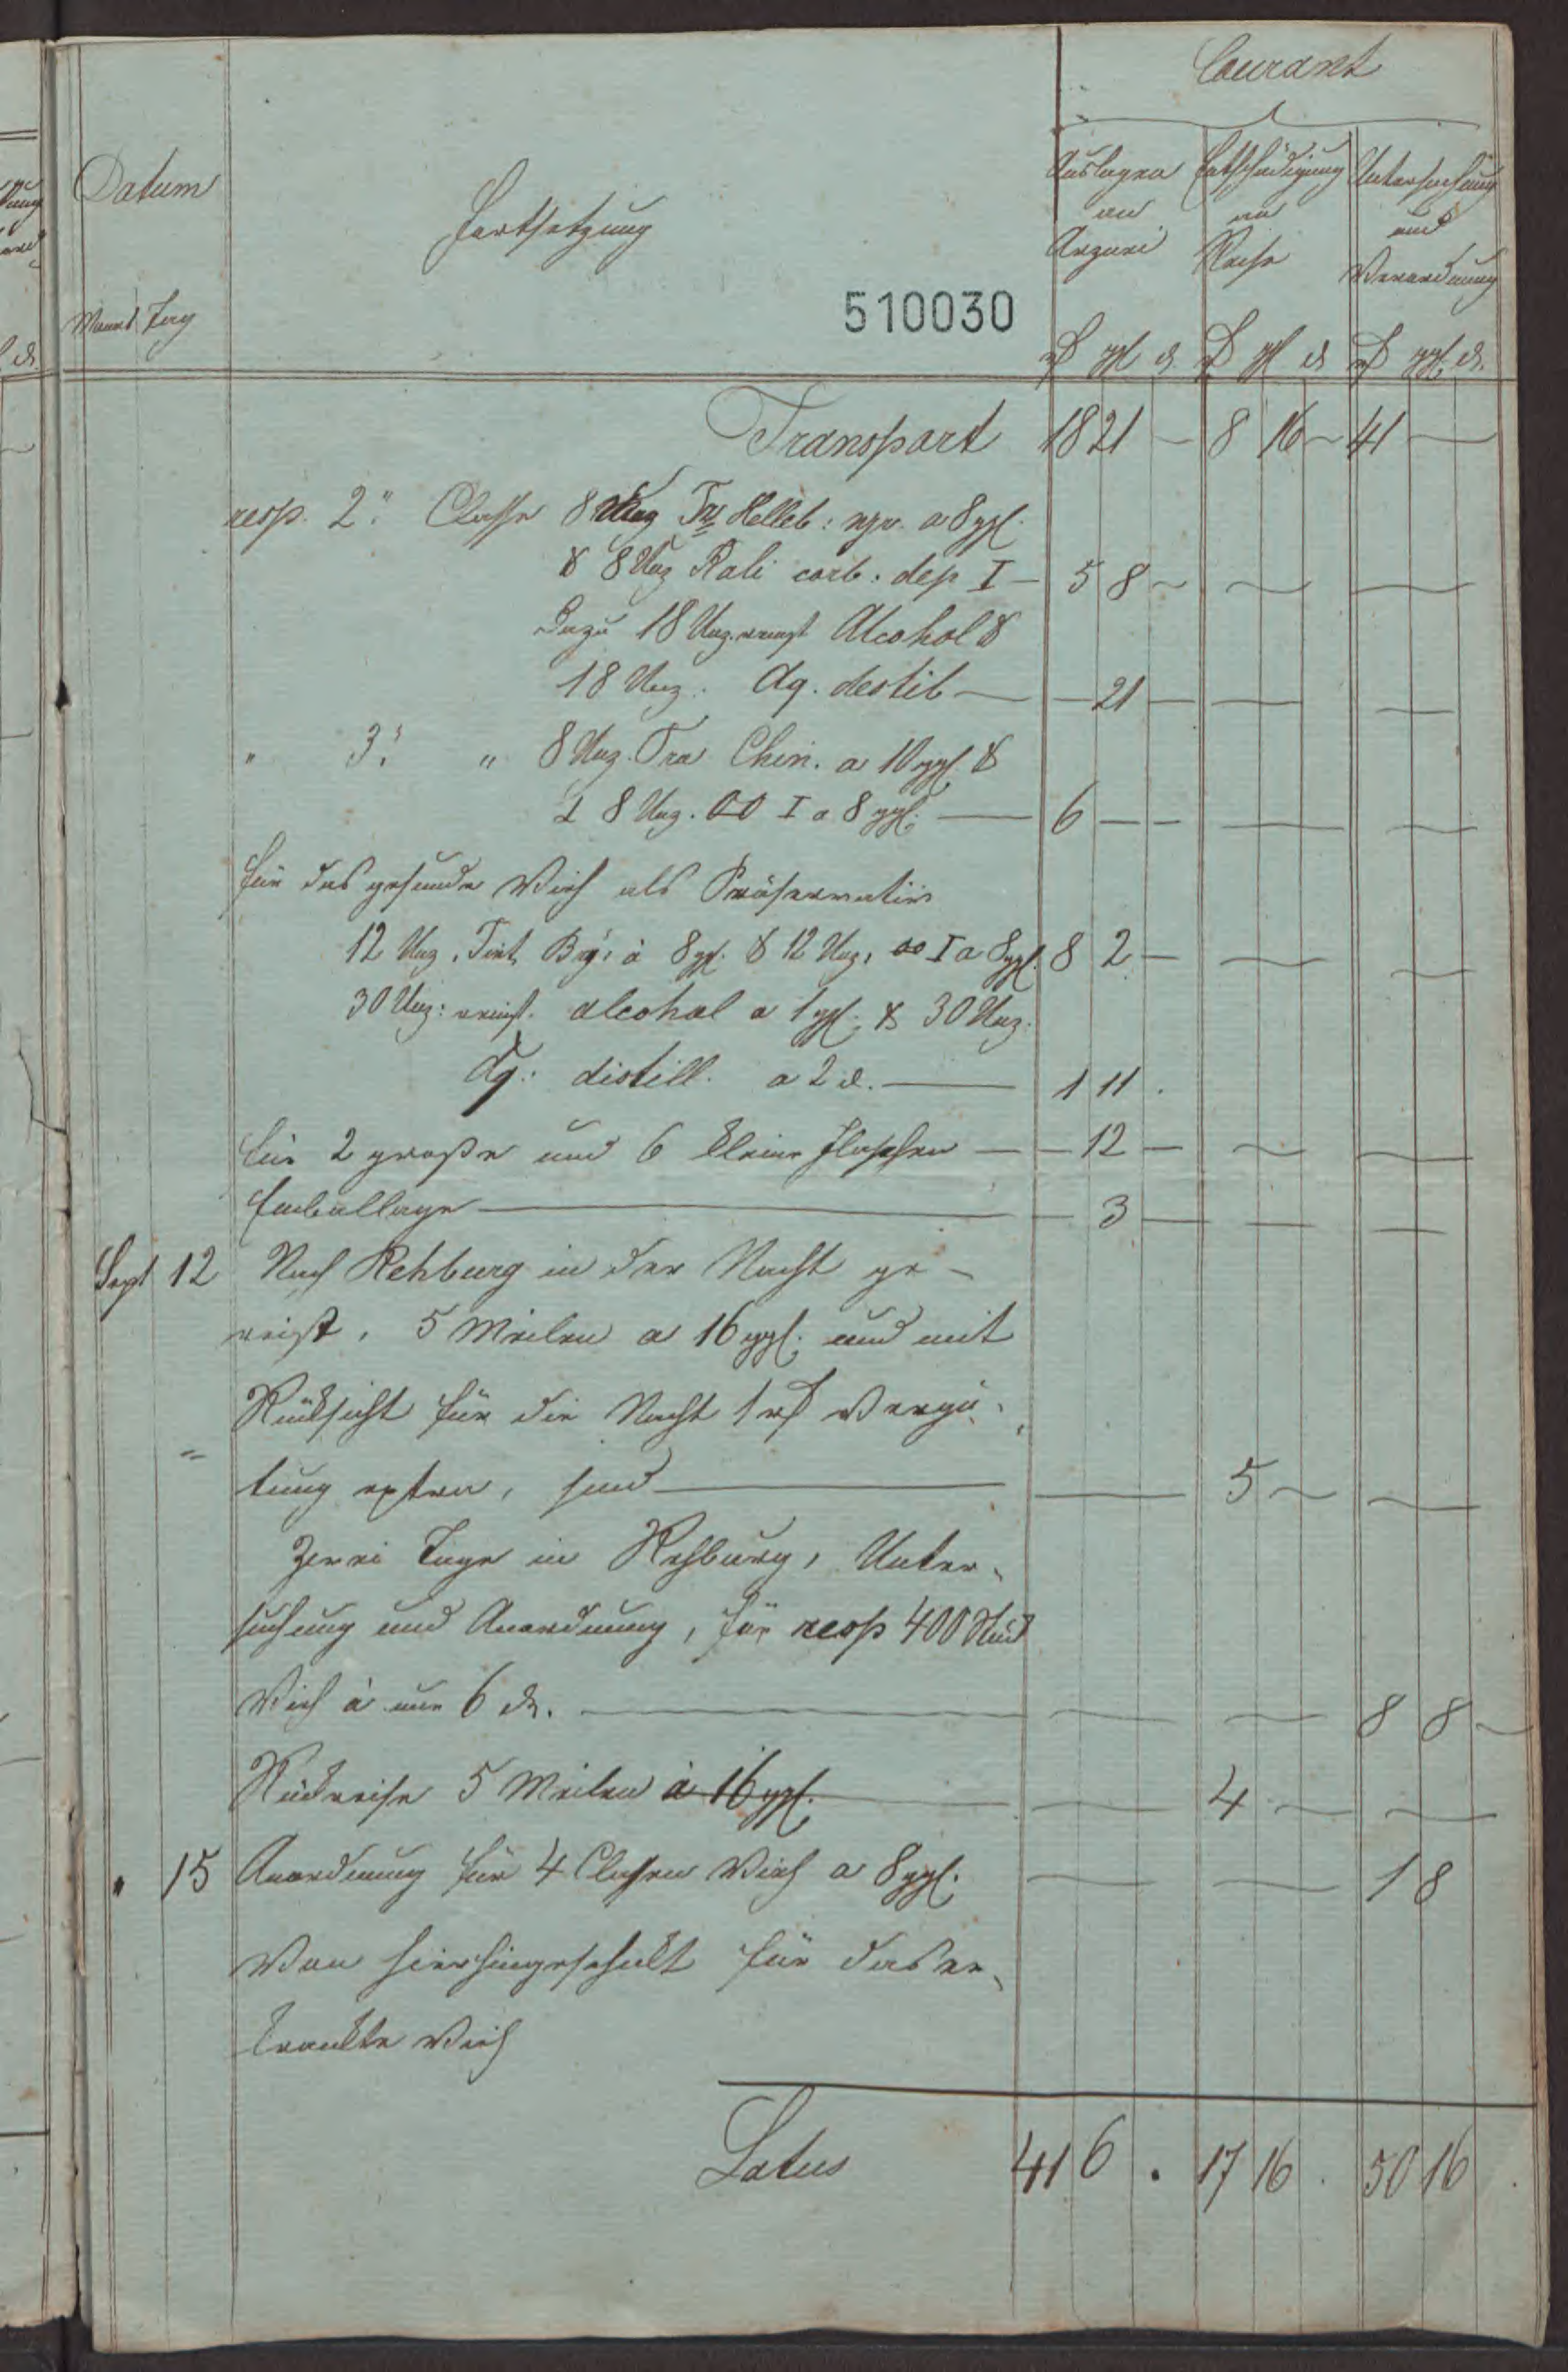 Courant
Datum
Fortsetzung
Auslagen Entschädigung Untersuchung
an an und
Arznei Reise Verordnung
510030
Monat Tag
rℳ ggl d. rℳ ggl d rℳ ggl. d.
Transport 18 21 – 8 16 – 41 –
resp. 2. Classe 8 Unz Tr Helleb: ngr. a 8 ggl.
& 8 Unz Kali carb. dep I — 5 8 –
Dazu 18 Unz. reinst Alcohol &
18 Unz. Aq. destil — — 21 —
" 3. " 8 Unz. Tra Chin. a 10 ggl. &
8 Unz. I a 8 ggl. — 6 — —
für das gesunde Vieh als Präservativ
12 Unz. Tint. Bry: à 8 ggl. & 12 Unz. I a 8 ggl. 8 2 —
30 Unz: reinst. alcohol a 1 ggl. & 30 Unz.
Aq: distill. a 2 d. — 1 11 .
für 2 große und 6 kleine Flaschen — — 12 —
Emballage — — 3 —
Sept 12 Nach Rehburg in der Nacht ge-
reist, 5 Meilen a 16 ggl. und mit
Rücksicht für die Nacht 1 rℳ Vergü-
tung extra, sind — 5 –
Zwei Tage in Rehburg, Unter-
suchung und Anordnung, für resp 400 Stück
Vieh à nur 6 d. — 8 8 –
Rückreise 5 Meilen à 16 ggl. — 4 –
" 15 Anordnung für 4 Classen Vieh a 8 ggl. — 1 8
Von hier hingeschickt für das er-
krankte Vieh
Latus 41 6 . 17 16 . 50 16 .